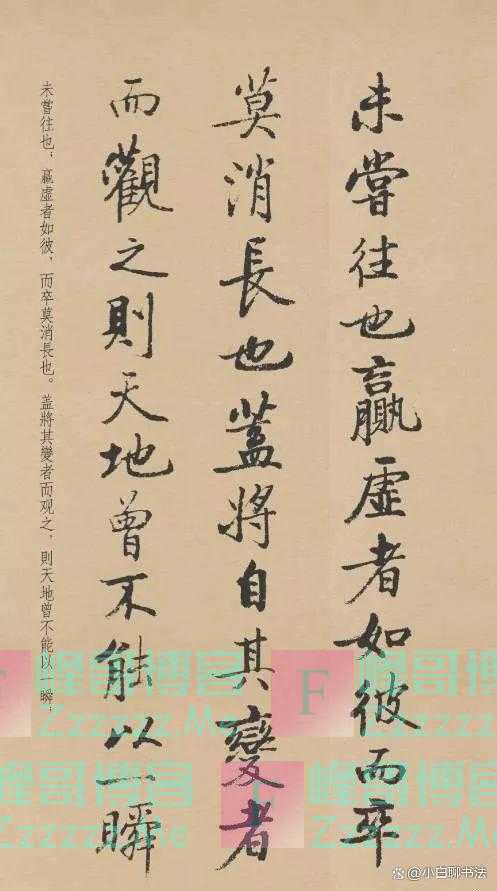 未嘗往也贏虛者如彼而卒
莫消長也蓋將自其變者
而觀之則天地曾不能以一瞬
未嘗往也；贏虛者如彼，而卒莫消長也。蓋將其變者而观之，則天地曾不能以一瞬；
峰哥博客
Zzzzzz.Me
F
峰哥博客
Zzzzzz.Me
@小白聊书法